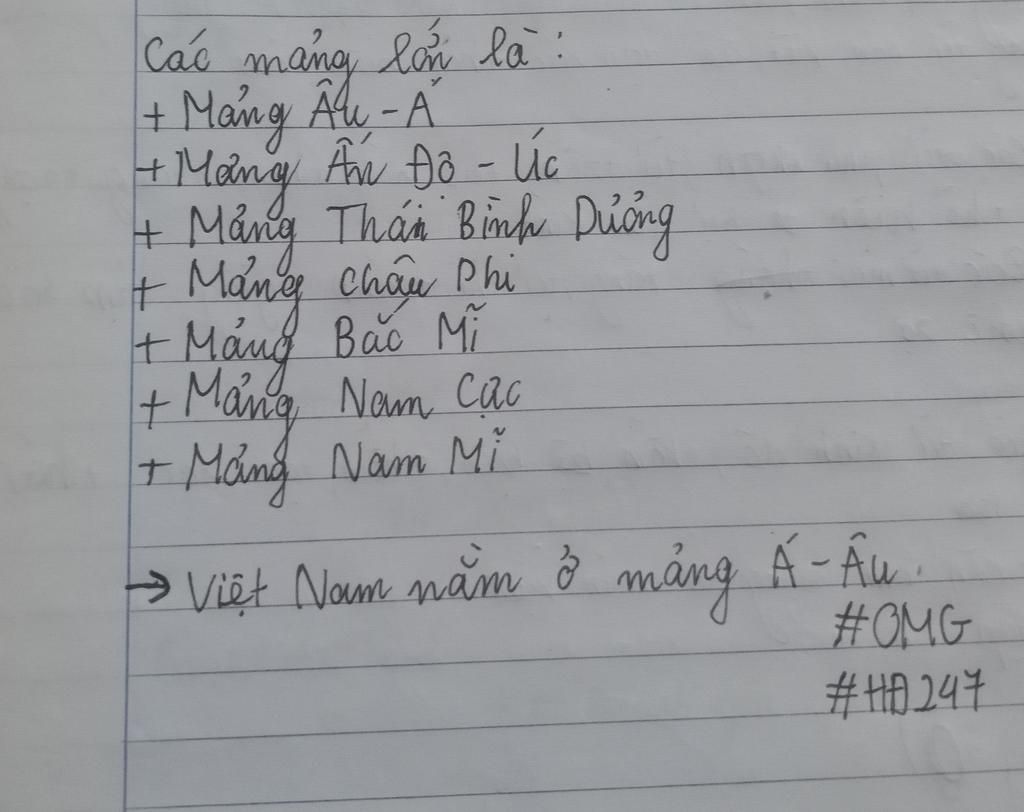 Các mảng lớn là:
+ Mảng Âu - Á
+ Mảng Ấn Độ - Úc
+ Mảng Thái Bình Dương
+ Mảng châu Phi
+ Mảng Bắc Mĩ
+ Mảng Nam Cực
+ Mảng Nam Mĩ
→ Việt Nam nằm ở mảng Á - Âu.
#OMG
#HĐ247